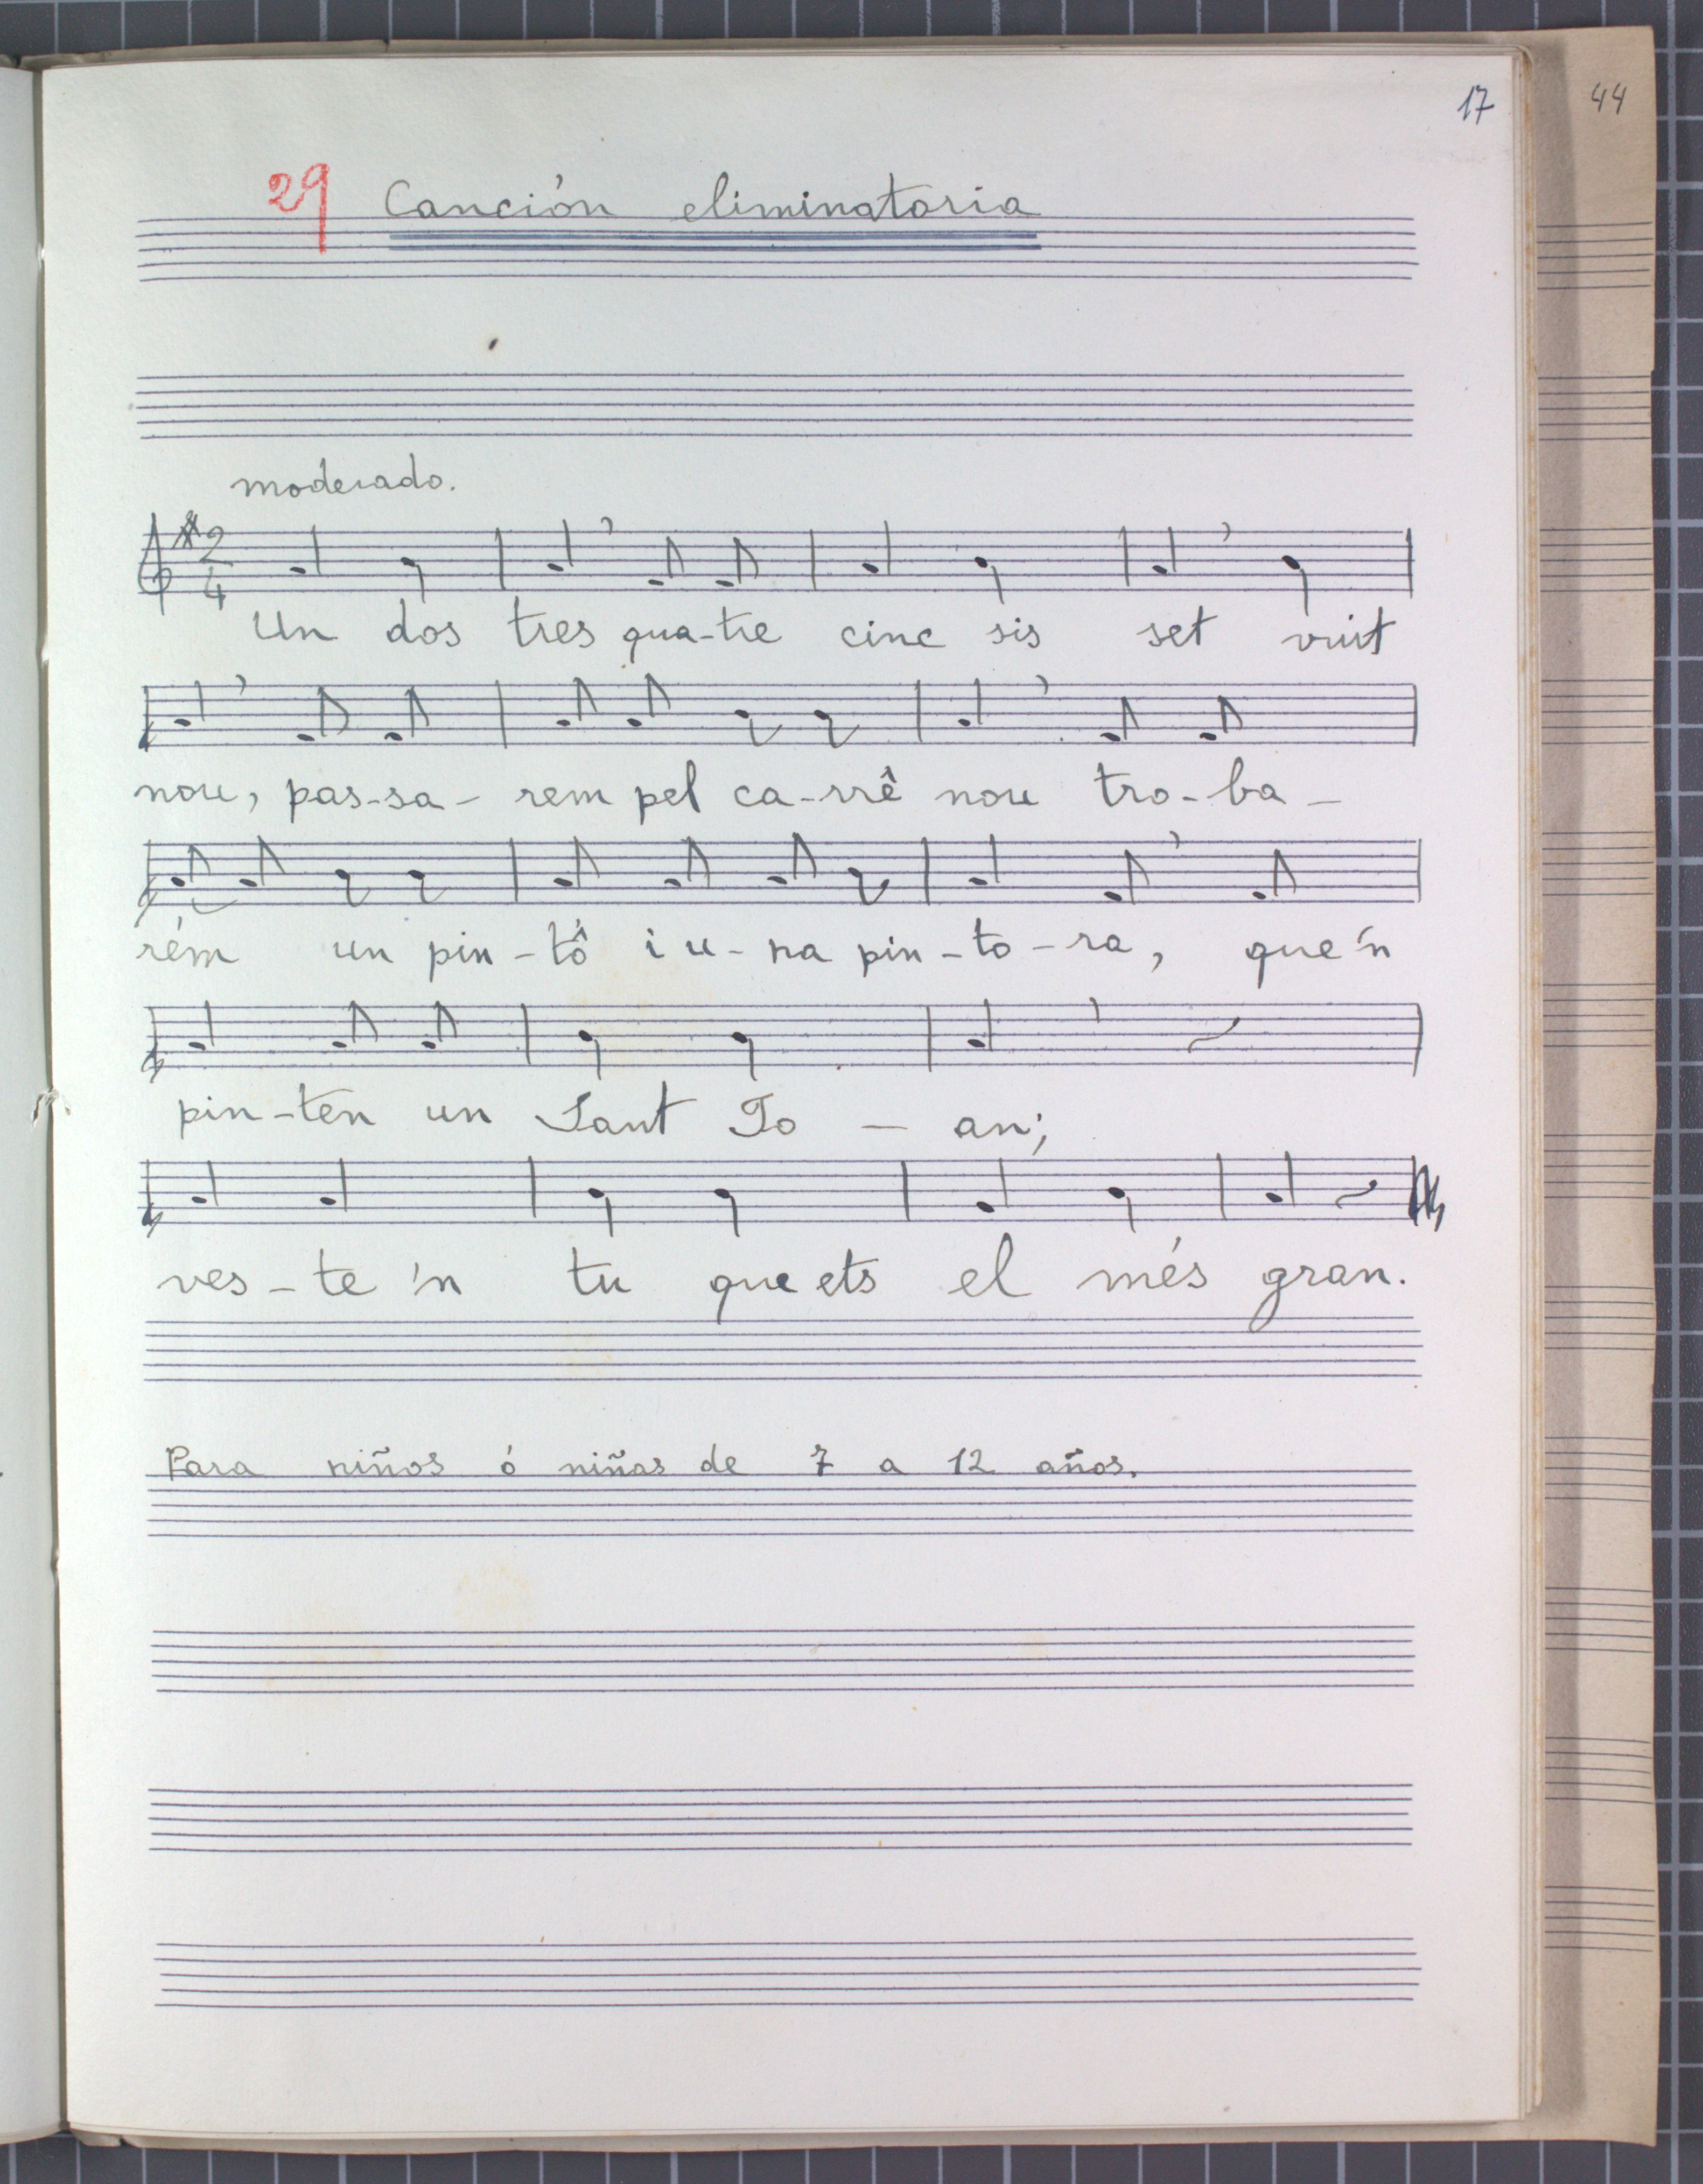 17
44
29 Canción eliminatoria
moderado.
2
4
Un dos tres qua-tre cinc sis set vuit
nou, pas-sa- rem pel ca-rrê nou tro-ba-
rém un pin-tô i u-na pin-to-ra, que'n
pin-ten un Sant Jo - an;
ves-te'n tu que ets el més gran.
Para niños ó niñas de 7 a 12 años.